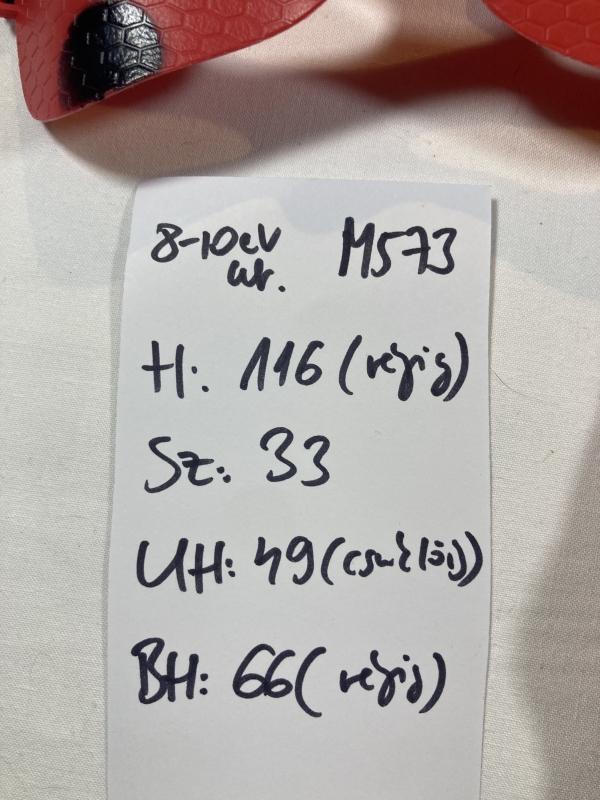 8-10év M573
wr.
H: 116 (végig)
Sz: 33
UH: 49 (csuklóig)
BH: 66 (végig)